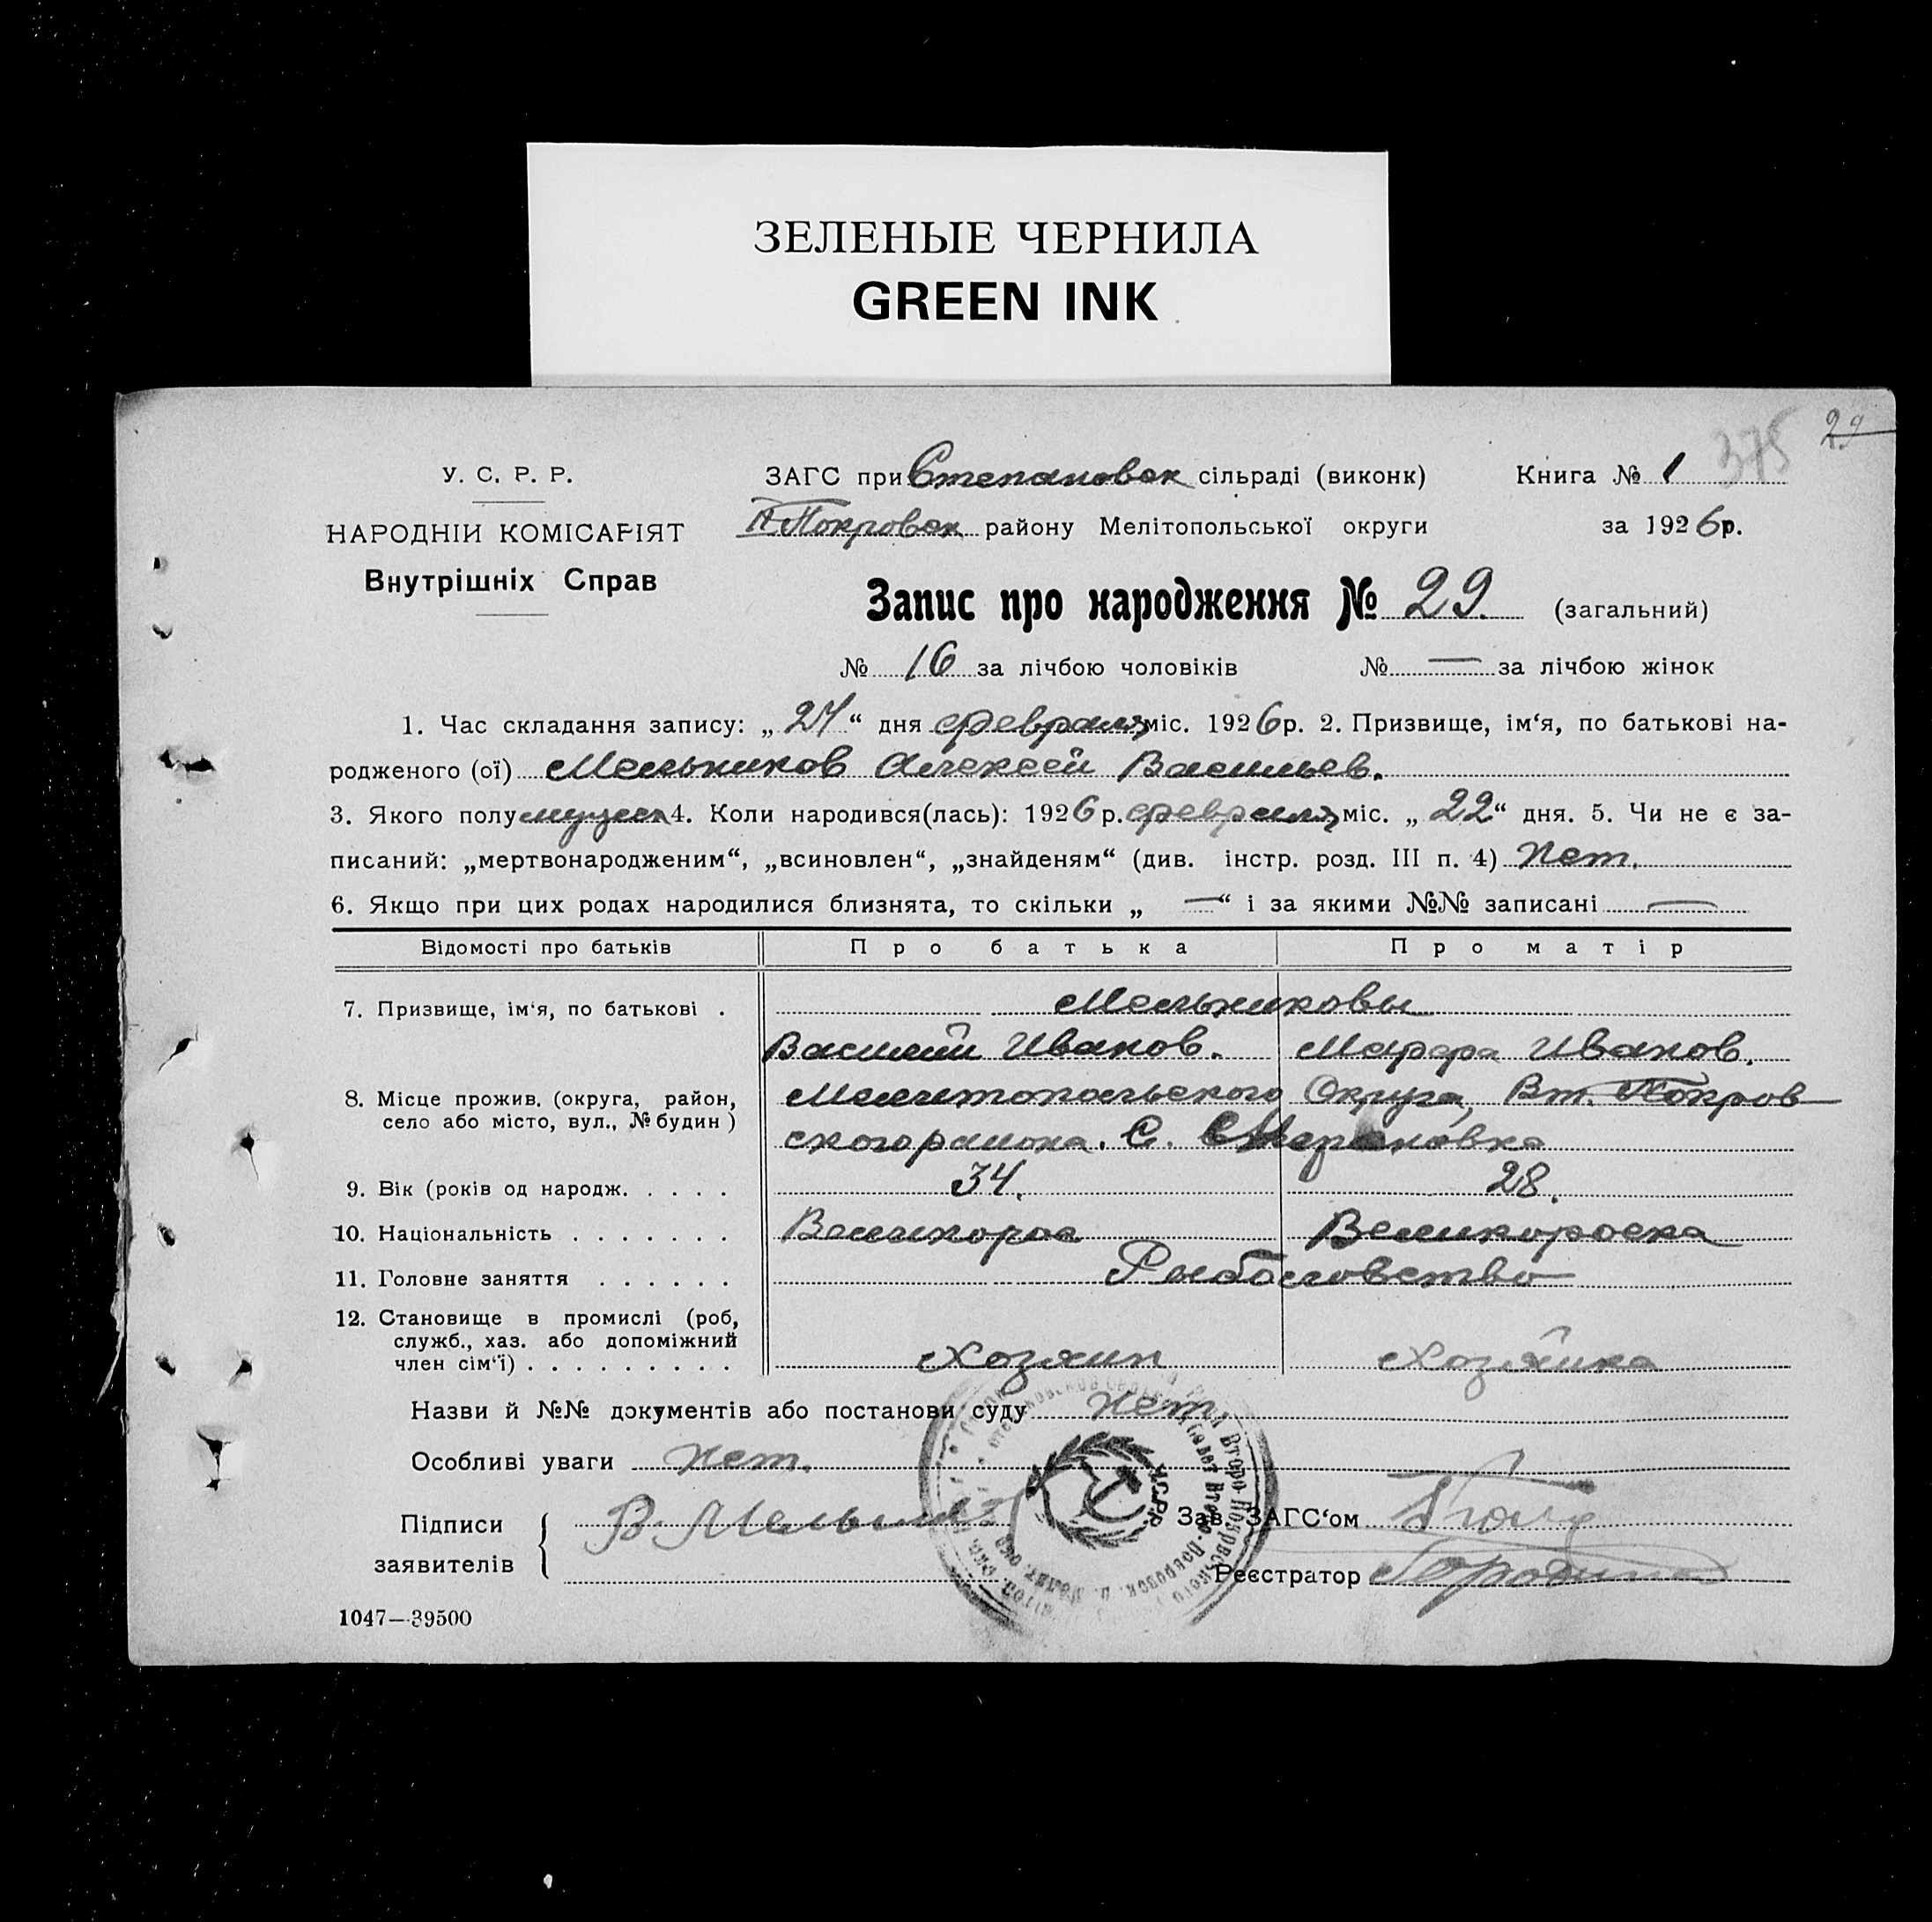 ЗЕЛЕНЫЕ ЧЕРНИЛА
GREEN INK
29
375
У. С. Р. Р.
НАРОДНІЙ КОМІСАРІЯТ
Внутрішніх Справ
ЗАГС при Степановск сільраді (виконк) Книга № 1
Покровск району Мелітопольської округи за 1926р.
Запис про народження № 29. (загальний)
№ 16 за лічбою чоловіків № — за лічбою жінок
1. Час складання запису: „24“ дня февраля міс. 1926р. 2. Призвище, ім‘я, по батькові на-
родженого (ої) Мельников Алексей Васильев.
3. Якого полу мужск 4. Коли народився(лась): 1926р. февраля міс. „22“ дня. 5. Чи не є за-
писаний: „мертвонародженим“, „всиновлен“, „знайденям“ (див. інстр. розд. III п. 4) Нет.
6. Якщо при цих родах народилися близнята, то скільки „—“ і за якими №№ записані —
Відомості про батьків Про батька Про матір
7. Призвище, ім‘я, по батькові . Мельниковы
Василий Иванов. Марфа Иванов.
8. Місце прожив. (округа, район, село або місто, вул., № будин) Мелитопольского Округа, Вт. Покров
ского района. С. Степановка
9. Вік (років од народж. . . . . 34. 28.
10. Національність . . . . . . . Великорос Великороска
11. Головне заняття . . . . . . Рыболовство
12. Становище в промислі (роб, служб., хаз. або допоміжний член сім‘ї) . . . . . . . . . Хозяин Хозяйка
Назви й №№ документів або постанови суду Нет.
Особливі уваги Нет.
Підписи заявителів В. Мельник
Зав. ЗАГС‘ом
Реєстратор
УСРР
1047—39500